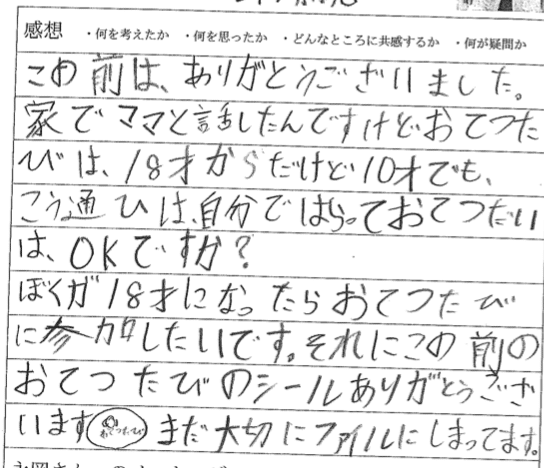 感想 ・何を考えたか ・何を思ったか ・どんなところに共感するか ・何が疑問か
この前は、ありがとうございました。
家でママと話したんですけどおてつた
びは、18才からだけど10才でも、
こう通ひは、自分ではらっておてつだい
は、OKですか?
ぼくが18才になったらおてつたび
に参加したいです。それにこの前の
おてつたびのシールありがとうござ
います おてつたび まだ大切にファイルにしまってます。